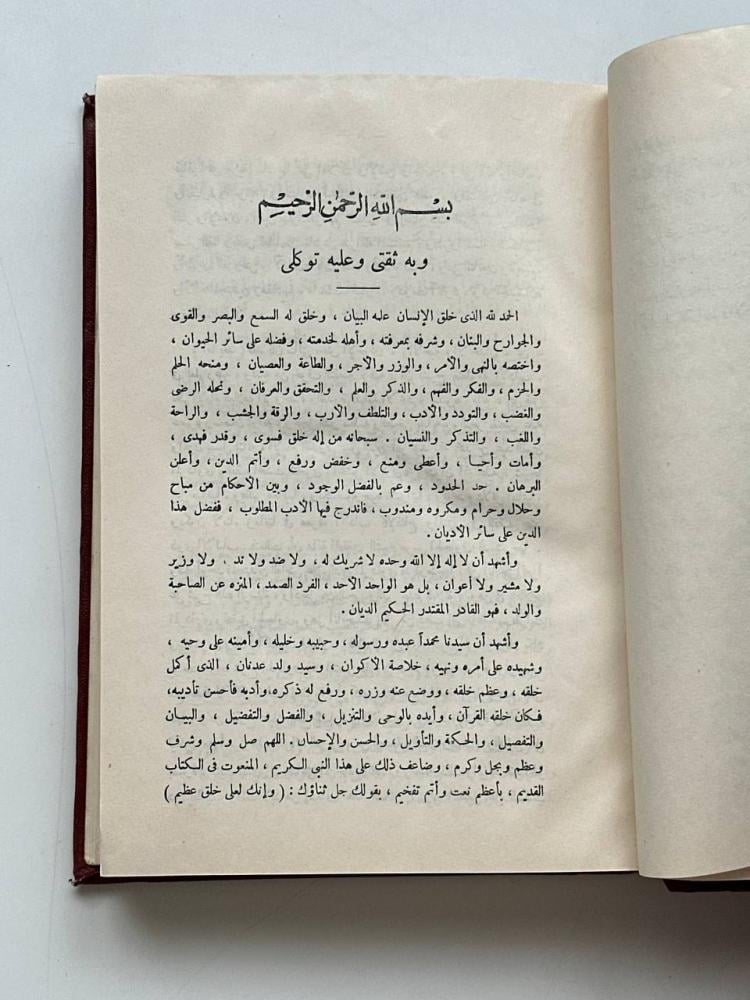 بِسْمِ اللهِ الرَّحْمٰنِ الرَّحِيْمِ
وبه ثقتى وعليه توكلى
الحمد لله الذى خلق الإنسان علمه البيان ، وخلق له السمع والبصر والقوى
والجوارح والبنان ، وشرفه بمعرفته ، وأهله لخدمته ، وفضله على سائر الحيوان ،
واختصه بالنهى والأمر ، والوزر والأجر ، والطاعة والعصيان ، ومنحه الحلم
والحزم ، والفكر والفهم ، والذكر والعلم ، والتحقق والعرفان ، ونحله الرضى
والغضب ، والتودد والأدب ، والتلطف والأرب ، والرقة والجشب ، والراحة
واللغب ، والتذكر والنسيان . سبحانه من إله خلق فسوى ، وقدر فهدى ،
وأمات وأحيا ، وأعطى ومنع ، وخفض ورفع ، وأتم الدين ، وأعلن
البرهان . حد الحدود ، وعم بالفضل الوجود ، وبين الأحكام من مباح
وحلال وحرام ومكروه ومندوب ، فاندرج فيها الأدب المطلوب ، ففضل هذا
الدين على سائر الأديان .
وأشهد أن لا إله إلا الله وحده لا شريك له ، ولا ضد ولا ند . ولا وزير
ولا مشير ولا أعوان ، بل هو الواحد الأحد ، الفرد الصمد ، المنزه عن الصاحبة
والولد ، فهو القادر المقتدر الحكيم الديان .
وأشهد أن سيدنا محمداً عبده ورسوله ، وحبيبه وخليله ، وأمينه على وحيه ،
وشهيده على أمره ونهيه ، خلاصة الأكوان ، وسيد ولد عدنان ، الذى أكمل
خلقه ، وعظم خلقه ، ووضع عنه وزره ، ورفع له ذكره، وأدبه فأحسن تأديبه،
فكان خلقه القرآن ، وأيده بالوحى والتنزيل ، والفضل والتفضيل ، والبيان
والتفصيل ، والحكمة والتأويل ، والحسن والإحسان . اللهم صل وسلم وشرف
وعظم وبجل وكرم ، وضاعف ذلك على هذا النبى الكريم ، المنعوت فى الكتاب
القديم ، بأعظم نعت وأتم تفخيم ، بقولك جل ثناؤك : ( وإنك لعلى خلق عظيم )